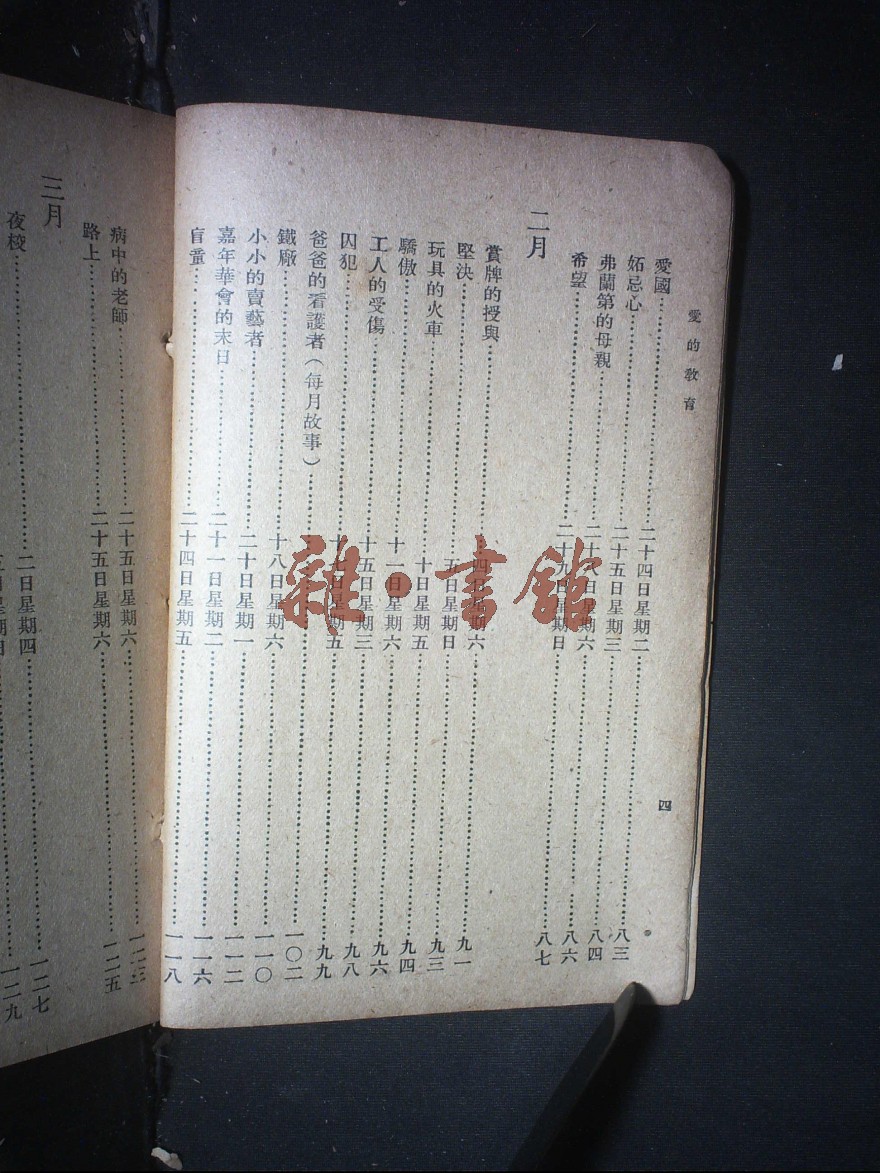 愛的教育 四
愛國……二十四日星期二……八三
妬忌心……二十五日星期三……八四
弗蘭第的母親……二十八日星期六……八六
希望……二十九日星期日……八七
二月
賞牌的授與……四日星期六……九一
堅決……五日星期日……九三
玩具的火車……十日星期五……九四
驕傲……十一日星期六……九六
工人的受傷……十五日星期三……九八
囚犯……十七日星期五……九九
爸爸的看護者（每月故事）……一〇二
鐵廠……十八日星期六……一一〇
小小的賣藝者……二十日星期一……一一二
嘉年華會的末日……二十一日星期二……一一六
盲童……二十四日星期五……一一八
病中的老師……二十五日星期六……一二三
路上……二十五日星期六……一二五
三月
夜校……二日星期四……一二七
一二九
雜·書館